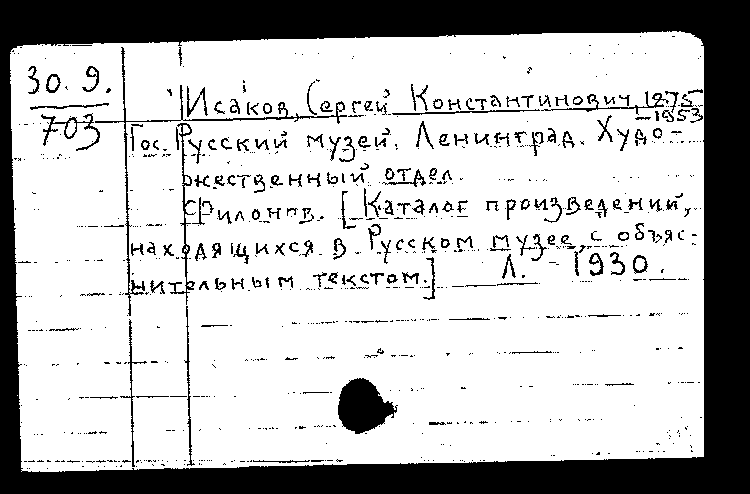 30.9.
703
Исаков, Сергей Константинович, 1875
-1953
Гос. Русский музей. Ленинград. Худо-
жественный отдел.
Филонов. [Каталог произведений,
находящихся в Русском музее, с объяс-
нительным текстом.] Л. - 1930.